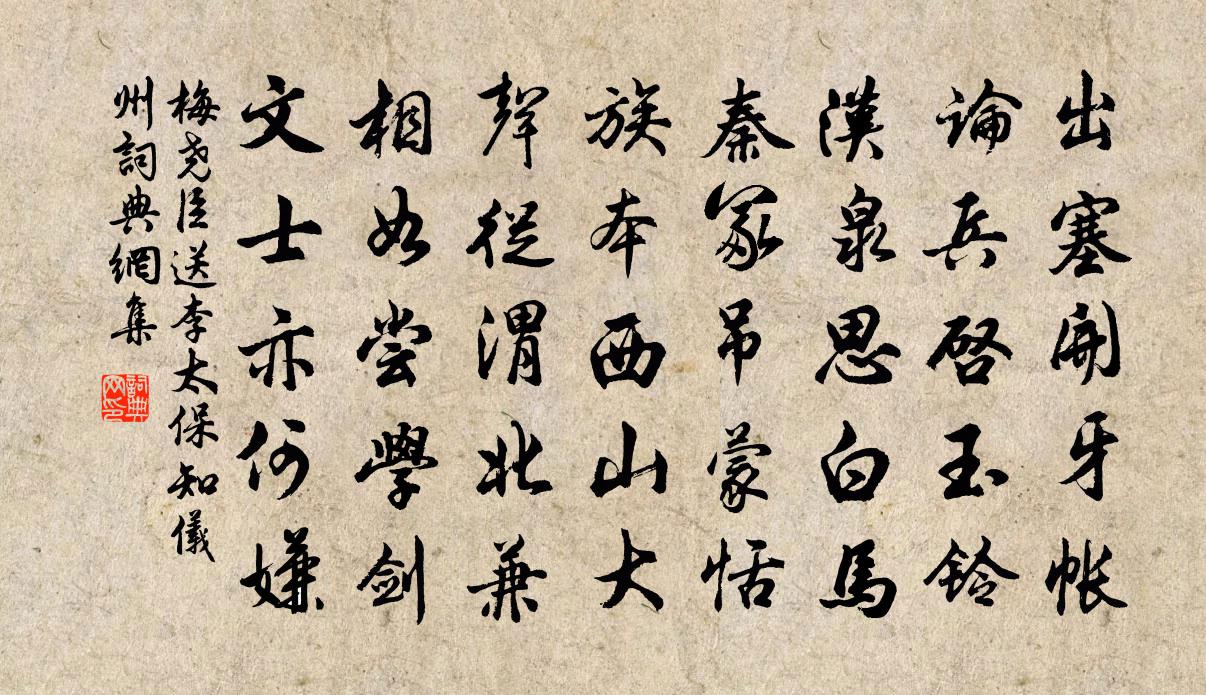 出塞開牙帳
論兵啓玉鈴
漢泉思白馬
秦冢吊蒙恬
族本西山大
聲從渭北兼
相如尝學劍
文士亦何嫌
梅尧臣送李太保知儀
州詞典網集
詞典网印